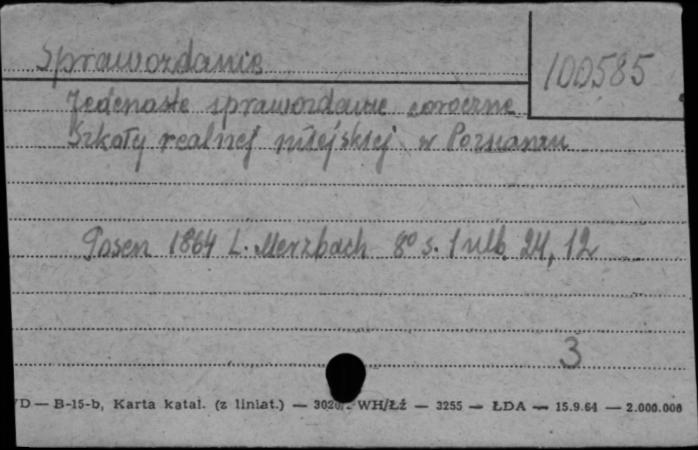 Sprawozdanie
100585
Jedenaste sprawozdanie coroczne
Szkoły realnej miejskiej w Poznaniu
Posen 1864 L. Merzbach 8° s. 1 nlb. 24, 12
3
D — B-15-b, Karta katal. (z liniat.) — 3020/ WH/Łź — 3255 — ŁDA — 15.9.64 — 2.000.000